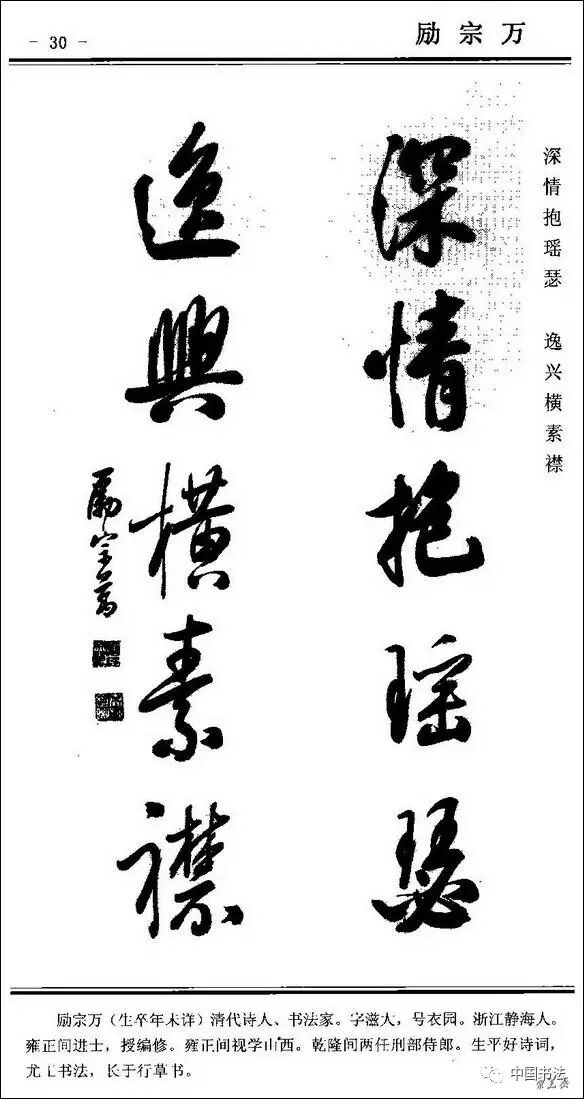 - 30 -
励宗万
深情抱瑶瑟 逸兴横素襟
深情抱瑶瑟
逸興橫素襟
勵宗萬
励宗万（生卒年未详）清代诗人、书法家。字滋大，号衣园。浙江静海人。
雍正间进士，授编修。雍正间视学山西。乾隆间两任刑部侍郎。生平好诗词，
尤工书法，长于行草书。
中国书法